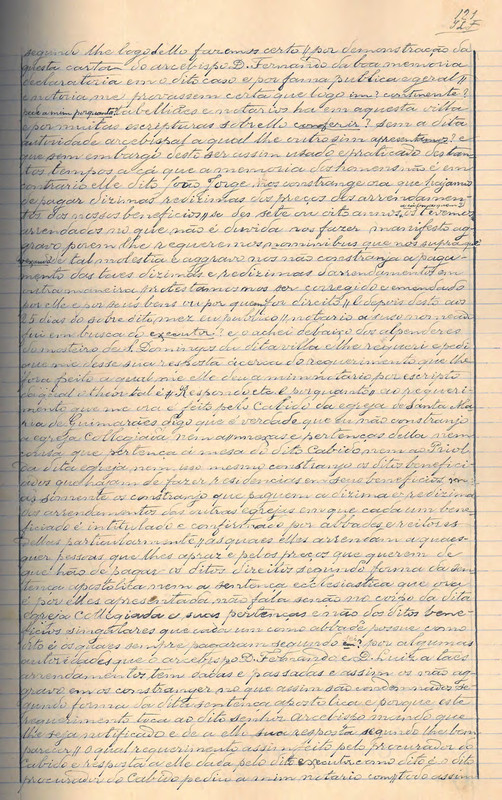 121
segundo lhe logo dello faremos certo // por demonstração da
questa carta do arcebispo D. Fernando da boa memoria
declaratoria em o dito caso e por fama publica e geral //
e notoria me provassem certa que logo in? continente?
tabelliães e notarios ha em aquesta villa
e por muitas escripturas sobre ello conferir? sem a dita
autoridade arcebispal a qual lhe outro sim apresentamos? e
que sem embargo desto ser assim usado e praticado dos tan
tos tempos a cá que a memoria dos homens não é em
contrario elle dito João Jorge nos constrange ora que hajamos
de pagar dizimas redizimas dos preços dos arrendamen
tos dos nossos beneficios // se des sete ou oito annos os tivemos
arrendados no que não é duvida nos fazer manifesto ag
gravo porem lhe requeremos nominibus quo nos supra que
de tal molestia e aggravo nos não constranja a paga
mento das taes dizimas e redizimas d'arrendamentos em
outra maneira protestamos nos ser corregido e emendado
por elle e por seus bens ou por quem for direito // E depois desto aos
25 dias do sobredito mez eu publico // notario a seu nome
fui em busca do executor? e o achei debaixo dos alpendres
do mosteiro de S. Domingos da dita villa e lhe requeri e pedi
que me desse sua resposta ácerca do requerimento que lhe
fora feito a qual me elle deu a mim notario por escripto
da qual o theor tal é // Respondo eta é porquanto // ao requeri
mento que me ora é feito pelo Cabido da egreja de Santa Ma
ria de Guimarães digo que é verdade que eu não constranjo
a egreja Collegiada nem a // mezas e pertenças della nem
cousa que pertença á mesa do dito Cabido nem ao Priol
da dita egreja nem isso mesmo constranjo os ditos benefici
ados que hajam de fazer residencias em seus beneficios
as sómente os constranjo que paguem a dizima e redizima
dos arrendamentos das outras egrejas em que cada um bene
ficiado é intitulado e confirmado por abbades e reitores
dellas particularmente // as quaes elles arrendam a quaes
quer pessoas que lhes apraz e pelos preços que querem de
que hão de pagar os ditos direitos segundo forma da sen
tença apostolica nem a sentença ecclesiastica que ora
é por elles apresentada não fala senão no corpo da dita
egreja Collegiada e suas pertenças e não dos ditos bene
ficios singulares que cada um como abbade possue como
dito é os quaes sempre pagaram segundo por algumas
autoridades que o arcebispo D. Fernando e D. Luiz a taes
arrendamentos tem dadas e passadas e assim os não ag
gravo em os constranger no que assim são condemnados se
gundo forma da dita sentença apostolica e porque este
requerimento toca ao dito senhor arcebispo mando que
lhe seja notificado e dê a ello sua resposta segundo lhe bem
parecer // o qual requerimento assim feito pelo procurador do
Cabido e resposta a elle dada pelo dito executor como dito é o dito
procurador do Cabido pediu a mim notario com // todo assim